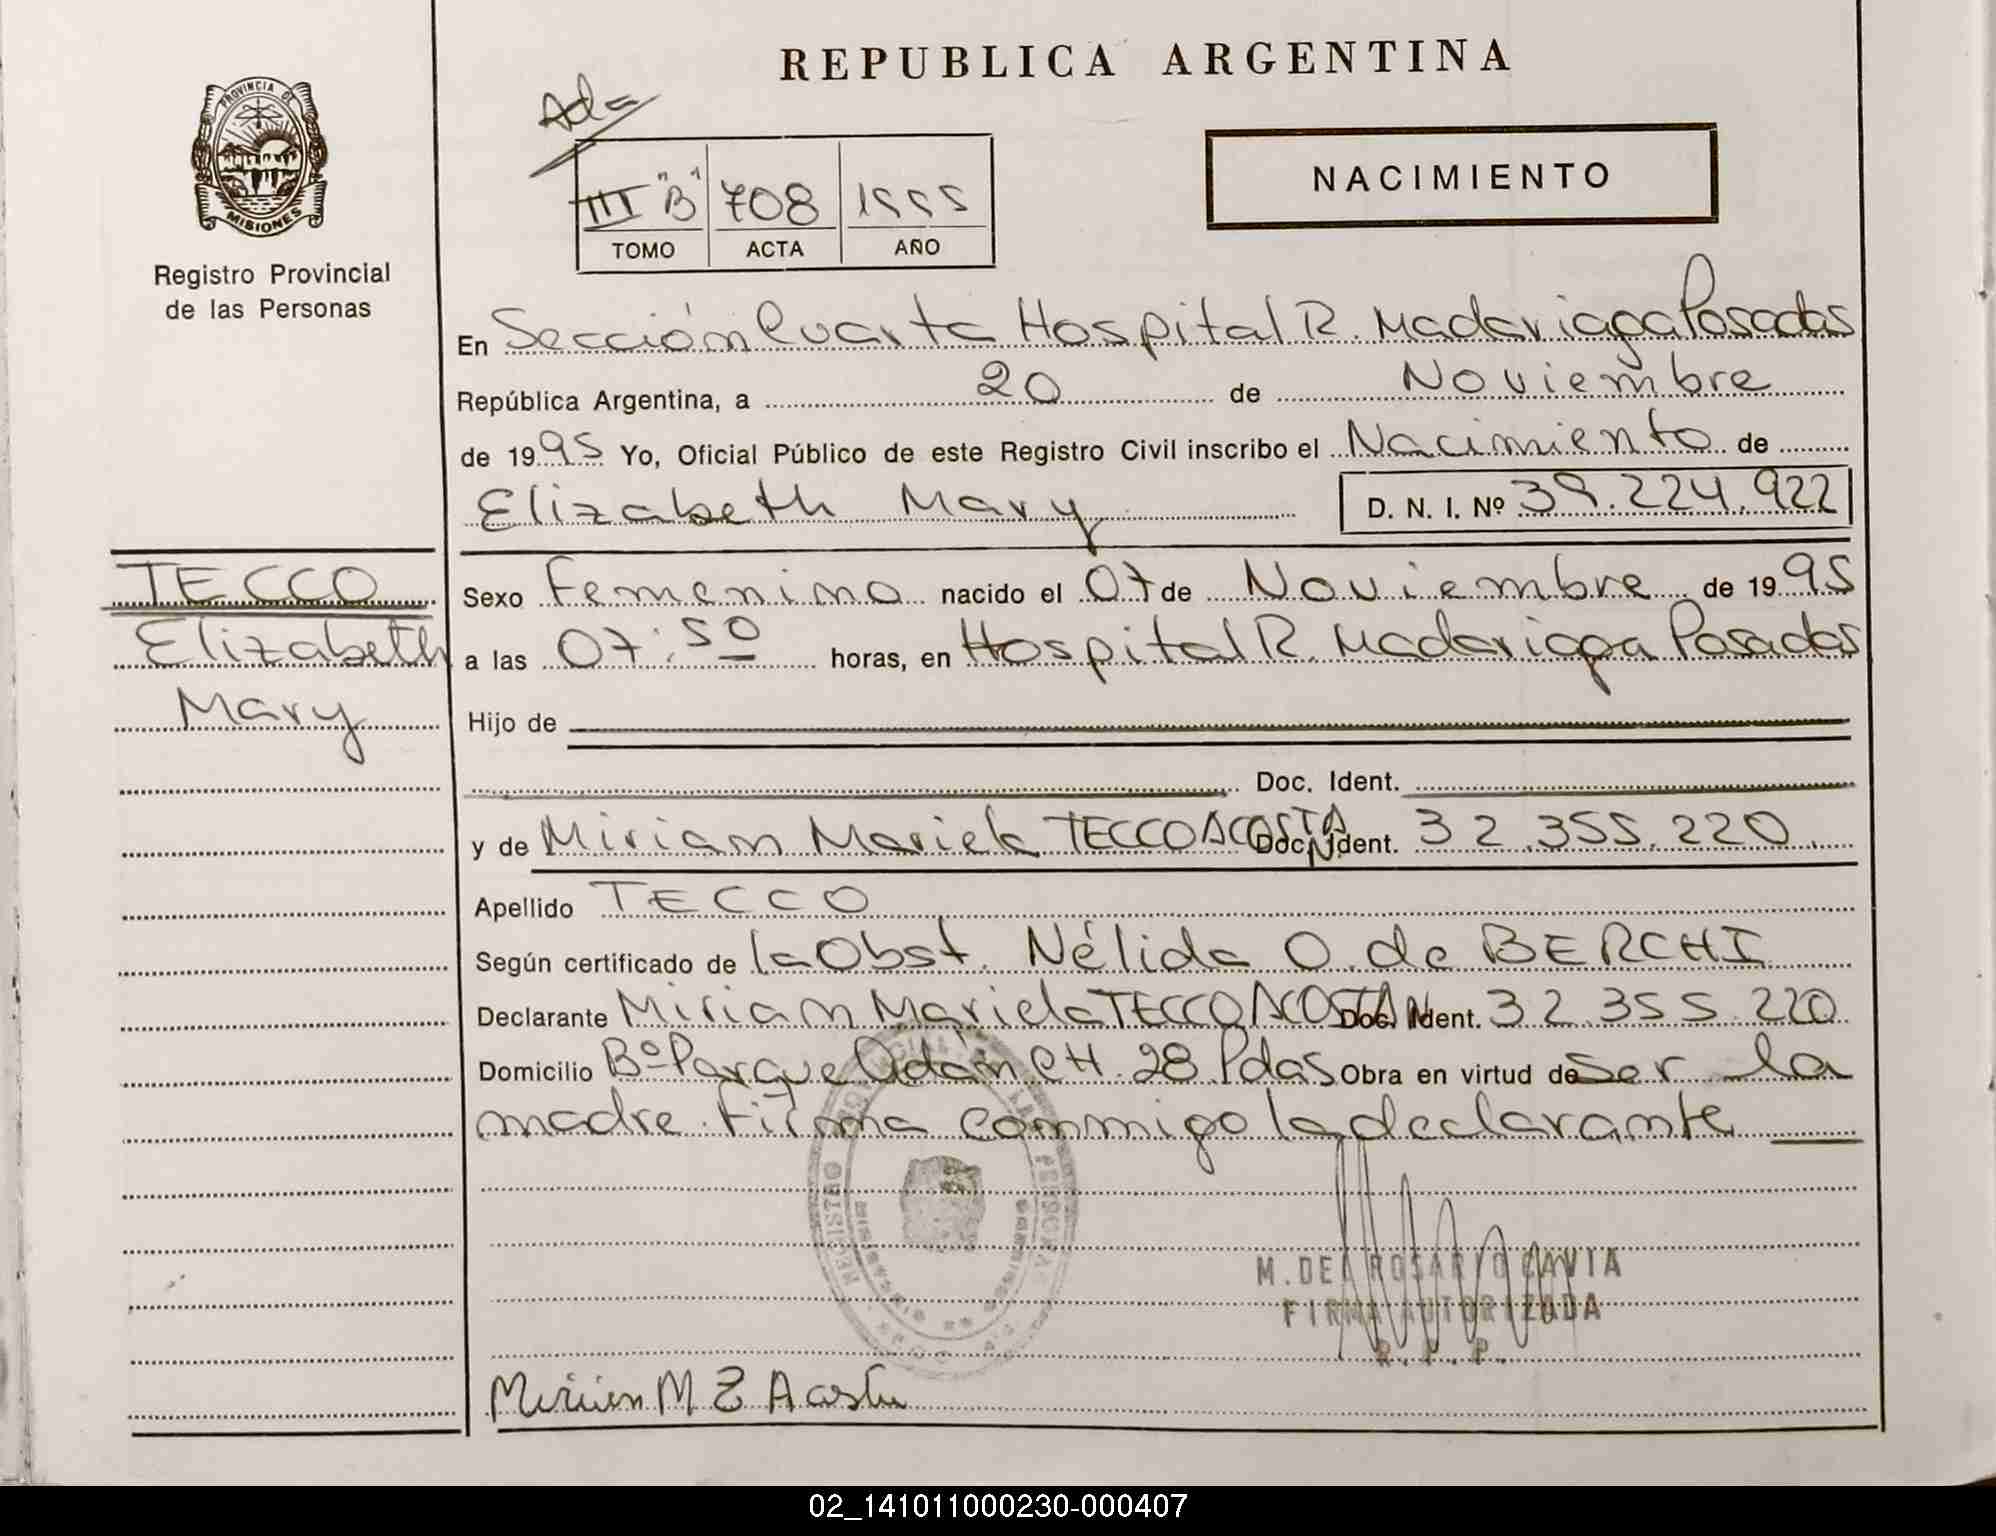 REPUBLICA ARGENTINA
Ada
III "B" 708 1995
TOMO ACTA AÑO
NACIMIENTO
PROVINCIA DE
MISIONES
Registro Provincial
de las Personas
En Sección Cuarta Hospital R. Madariaga Posadas
República Argentina, a 20 de Noviembre
de 1995 Yo, Oficial Público de este Registro Civil inscribo el Nacimiento de
Elizabeth Mary D. N. I. Nº 39.224.922
TECCO
Elizabeth
Mary
Sexo Femenino nacido el 07 de Noviembre de 1995
a las 07:50 horas, en Hospital R. Madariaga Posadas
Hijo de
Doc. Ident.
y de Miriam Mariela TECCO ACOSTA DNI Doc. Ident. 32.355.220
Apellido TECCO
Según certificado de la Obst. Nélida O. de BERCHI
Declarante Miriam Mariela TECCO ACOSTA Doc. Ident. 32.355.220
Domicilio Bº Parque Adam CH. 28 Pdas Obra en virtud de ser la
madre. Firma conmigo la declarante
REGISTRO PROVINCIAL PERSONAS
M. DEL ROSARIO CAVIA
FIRMA AUTORIZADA
R. P. P.
Acosta
02_141011000230-000407